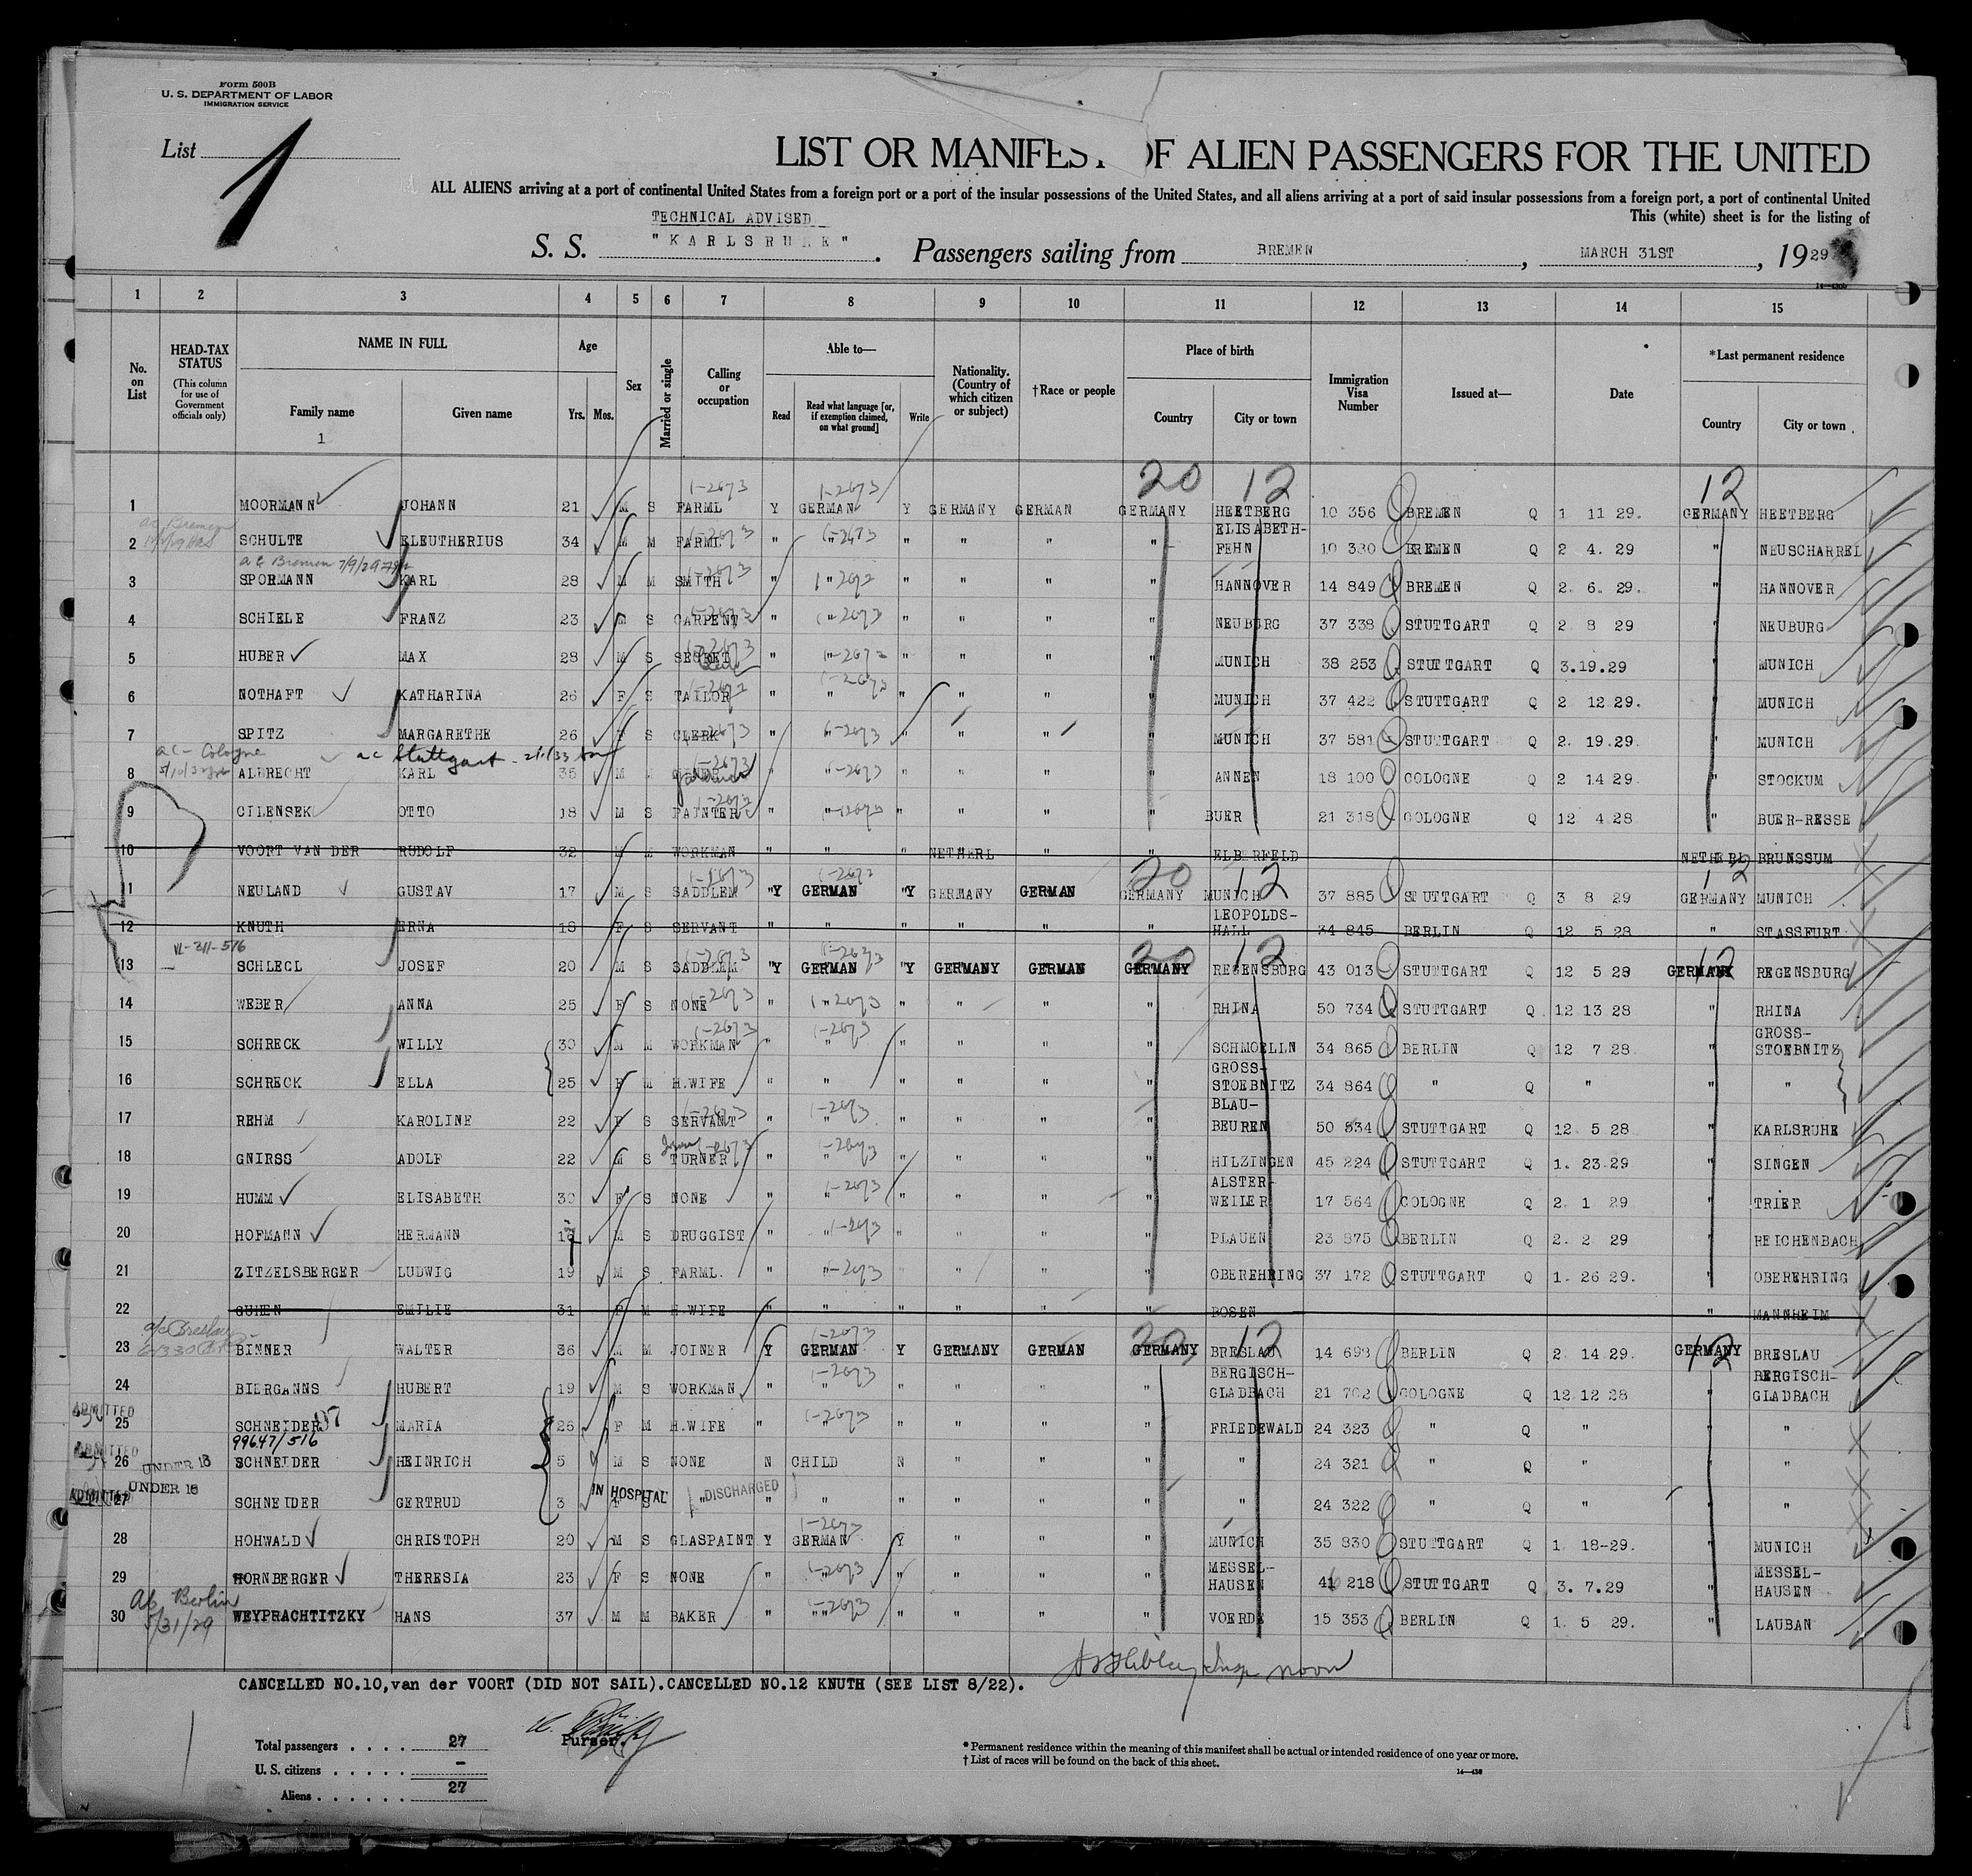 Form 500B
U. S. DEPARTMENT OF LABOR
IMMIGRATION SERVICE
List 1
LIST OR MANIFEST OF ALIEN PASSENGERS FOR THE UNITED
ALL ALIENS arriving at a port of continental United States from a foreign port or a port of the insular possessions of the United States, and all aliens arriving at a port of said insular possessions from a foreign port, a port of continental United
This (white) sheet is for the listing of
TECHNICAL ADVISED
S. S. "KARLSRUHE". Passengers sailing from BREMEN, MARCH 31ST, 1929
14—430b
1 2 3 4 5 6 7 8 9 10 11 12 13 14 15
No. on List
HEAD-TAX STATUS (This column for use of Government officials only)
NAME IN FULL
Family name
Given name
1
Age
Yrs. Mos.
Sex
Married or single
Calling or occupation
Able to—
Read
Read what language [or, if exemption claimed, on what ground]
Write
Nationality. (Country of which citizen or subject)
†Race or people
Place of birth
Country
City or town
Immigration Visa Number
Issued at—
Date
*Last permanent residence
Country
City or town
20 12 12
1-2673 1-2673
1 MOORMANN JOHANN 21 M S FARML Y GERMAN Y GERMANY GERMAN GERMANY HEETBERG 10 356 BREMEN Q 1 11 29. GERMANY HEETBERG
2 SCHULTE ELEUTHERIUS 34 M M FARML " " " " " " ELISABETH-FEHN 10 380 BREMEN Q 2 4. 29 " NEUSCHARREL
3 SPORMANN KARL 28 M M SMITH " " " " " " HANNOVER 14 849 BREMEN Q 2. 6. 29. " HANNOVER
4 SCHIELE FRANZ 23 M S CARPENT " " " " " " NEUBURG 37 338 STUTTGART Q 2 8 29 " NEUBURG
5 HUBER MAX 28 M S SECRET " " " " " " MUNICH 38 253 STUTTGART Q 3.19.29 " MUNICH
6 NOTHAFT KATHARINA 26 F S TAILOR " " " " " " MUNICH 37 422 STUTTGART Q 2 12 29. " MUNICH
7 SPITZ MARGARETHE 26 F S CLERK " " " " " " MUNICH 37 581 STUTTGART Q 2. 19.29. " MUNICH
ac - Cologne ac Stuttgart
8 ALBRECHT KARL 35 M M " " " " " " ANNEN 18 100 COLOGNE Q 2 14 29. " STOCKUM
9 CILENSEK OTTO 18 M S PAINTER " " " " " " BUER 21 318 COLOGNE Q 12 4.28 " BUER-RESSE
10 VOORT VAN DER RUDOLF 32 M M WORKMAN " " " NETHERL " " ELBERFELD NETHERL BRUNSSUM
20 12 12
11 NEULAND GUSTAV 17 M S SADDLEM "Y GERMAN "Y GERMANY GERMAN GERMANY MUNICH 37 885 STUTTGART Q 3 8 29 GERMANY MUNICH
12 KNUTH ERNA 18 F S SERVANT " " " " " " LEOPOLDS-HALL 34 845 BERLIN Q 12 5 28 " STASSFURT
VL-311-516
20 12 12
13 SCHLEGL JOSEF 20 M S SADDLEM "Y GERMAN "Y GERMANY GERMAN GERMANY REGENSBURG 43 013 STUTTGART Q 12 5 28 GERMANY REGENSBURG
14 WEBER ANNA 25 F S NONE " " " " " " RHINA 50 734 STUTTGART Q 12 13 28 " RHINA
15 SCHRECK WILLY 30 M M WORKMAN " " " " " " SCHMOELLN 34 865 BERLIN Q 12 7 28 " GROSS-STOEBNITZ
16 SCHRECK ELLA 25 F M H.WIFE " " " " " " GROSS-STOEBNITZ 34 864 " Q " " "
17 REHM KAROLINE 22 F S SERVANT " " " " " " BLAU-BEUREN 50 534 STUTTGART Q 12. 5 28 " KARLSRUHE
18 GNIRSS ADOLF 22 M S TURNER " " " " " " HILZINGEN 45 224 STUTTGART Q 1. 23.29 " SINGEN
19 HUMM ELISABETH 30 F S NONE " " " " " " ALSTER-WEILER 17 564 COLOGNE Q 2. 1 29 " TRIER
20 HOFMANN HERMANN 17 M S DRUGGIST " " " " " " PLAUEN 23 875 BERLIN Q 2. 2 29 " REICHENBACH
21 ZITZELSBERGER LUDWIG 19 M S FARML. " " " " " " OBEREHRING 37 172 STUTTGART Q 1. 26 29. " OBEREHRING
22 EMILIE 31 F M H.WIFE " " " " " " BOSEN " MANNHEIM
a/c Breslau
20 12 12
23 BINNER WALTER 36 M M JOINER Y GERMAN Y GERMANY GERMAN GERMANY BRESLAU 14 698 BERLIN Q 2. 14 29. GERMANY BRESLAU
24 BIERGANNS HUBERT 19 M S WORKMAN " " " " " " BERGISCH-GLADBACH 21 702 COLOGNE Q 12 12 28 " BERGISCH-GLADBACH
ADMITTED
25 SCHNEIDER MARIA 26 F M H.WIFE " " " " " " FRIEDEWALD 24 323 " Q " " "
99647/516
ADMITTED
UNDER 18
26 SCHNEIDER HEINRICH 5 M S NONE N CHILD N " " " " 24 321 " Q " " "
UNDER 18
ADMITTED
IN HOSPITAL DISCHARGED
27 SCHNEIDER GERTRUD 3 F S " " " " " " " " 24 322 " Q " " "
28 HOHWALD CHRISTOPH 20 M S GLASPAINT Y GERMAN Y " " " MUNICH 35 830 STUTTGART Q 1. 18-29. " MUNICH
29 HORNBERGER THERESIA 23 F S NONE " " " " " " MESSEL-HAUSEN 41 218 STUTTGART Q 3. 7.29 " MESSEL-HAUSEN
Berlin
5/31/29
30 WEYPRACHTITZKY HANS 37 M M BAKER " "" " " " " VOERDE 15 353 BERLIN Q 1. 5 29. " LAUBAN
CANCELLED NO.10,van der VOORT (DID NOT SAIL).CANCELLED NO.12 KNUTH (SEE LIST 8/22).
Total passengers . . . . 27
Purser.
U. S. citizens . . . . . -
Aliens . . . . . . 27
* Permanent residence within the meaning of this manifest shall be actual or intended residence of one year or more.
† List of races will be found on the back of this sheet.
14—430